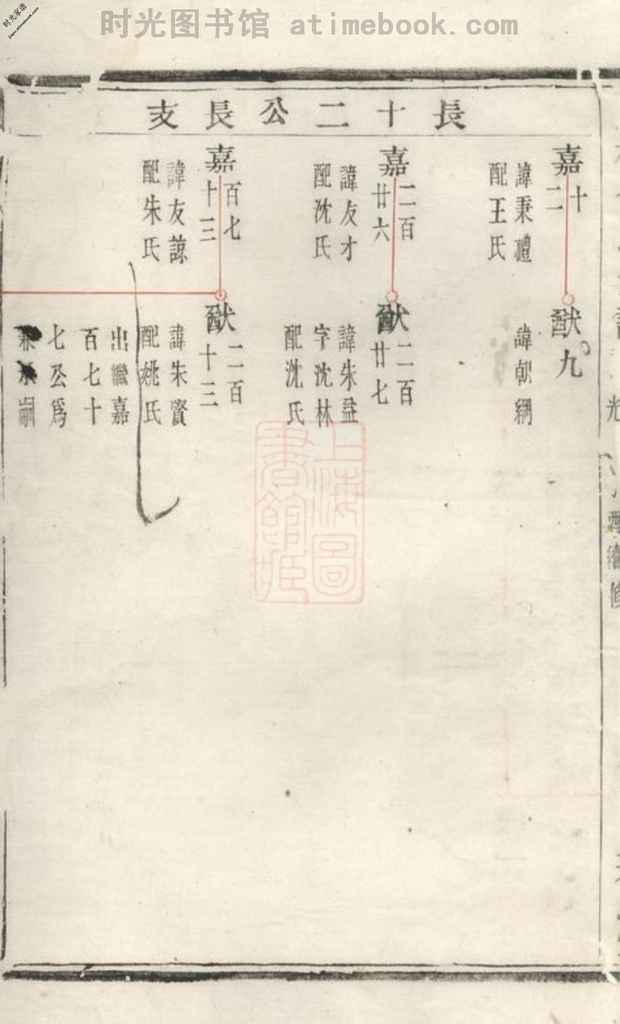 时光图书馆 atimebook.com
長十二公長支
嘉十二
諱秉禮
配王氏
猷九
諱朝綱
嘉二百廿六
諱友才
配沈氏
猷二百廿七
諱朱益
字沈林
配沈氏
嘉百七十三
諱友諒
配朱氏
猷二百十三
諱朱賓
配姚氏
出繼嘉
百七十
七公為
嗣
上海圖書館藏